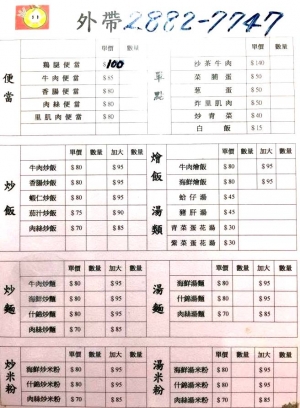 外帶2882-7747
便當
單價 數量
鷄腿便當 $100
牛肉便當 $85
香腸便當 $80
肉絲便當 $80
里肌肉便當 $80
單點
單價 數量
沙茶牛肉 $140
菜脯蛋 $50
蔥蛋 $50
炸里肌肉 $50
炒青菜 $60
白飯 $15
炒飯
單價 數量 加大 數量
牛肉炒飯 $80 $95
香腸炒飯 $80 $95
蝦仁炒飯 $80 $95
茄汁炒飯 $75 $90
肉絲炒飯 $70 $85
燴飯
湯類
單價 數量 加大 數量
牛肉燴飯 $80 $95
海鮮燴飯 $80 $95
蛤仔湯 $45
豬肝湯 $45
青菜蛋花湯 $30
紫菜蛋花湯 $30
炒麵
單價 數量 加大 數量
牛肉炒麵 $80 $95
海鮮炒麵 $80 $95
什錦炒麵 $80 $95
肉絲炒麵 $70 $85
湯麵
單價 數量 加大 數量
海鮮湯麵 $80 $95
什錦湯麵 $80 $95
肉絲湯麵 $70 $85
炒米粉
單價 數量 加大 數量
海鮮炒米粉 $80 $95
什錦炒米粉 $80 $95
肉絲炒米粉 $70 $85
湯米粉
單價 數量 加大 數量
海鮮湯米粉 $80 $95
什錦湯米粉 $80 $95
肉絲湯米粉 $70 $85